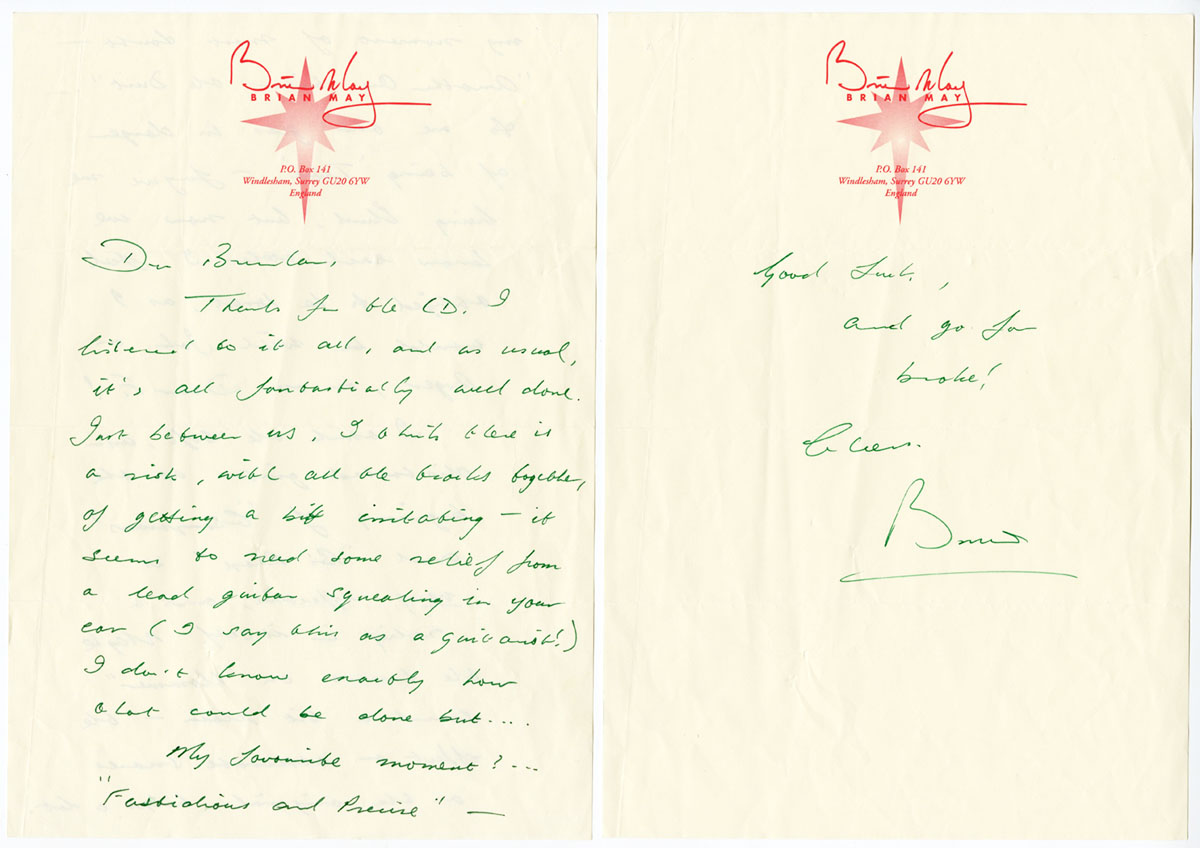 Brian May
BRIAN MAY
P.O. Box 141
Windlesham, Surrey GU20 6YW
England
Dear
Thanks for the CD. I
listened to it all, and as usual,
it's all fantastically well done.
Just between us, I think there is
a risk, with all the tracks together,
of getting a bit irritating — it
seems to need some relief from
a lead guitar squealing in your
ear (I say this as a guitarist!)
I don't know exactly how
that could be done but....
My favourite moment?...
"Fastidious and Precise" —
Brian May
BRIAN MAY
P.O. Box 141
Windlesham, Surrey GU20 6YW
England
Good luck,
and go for
broke!
Cheers.
Brian